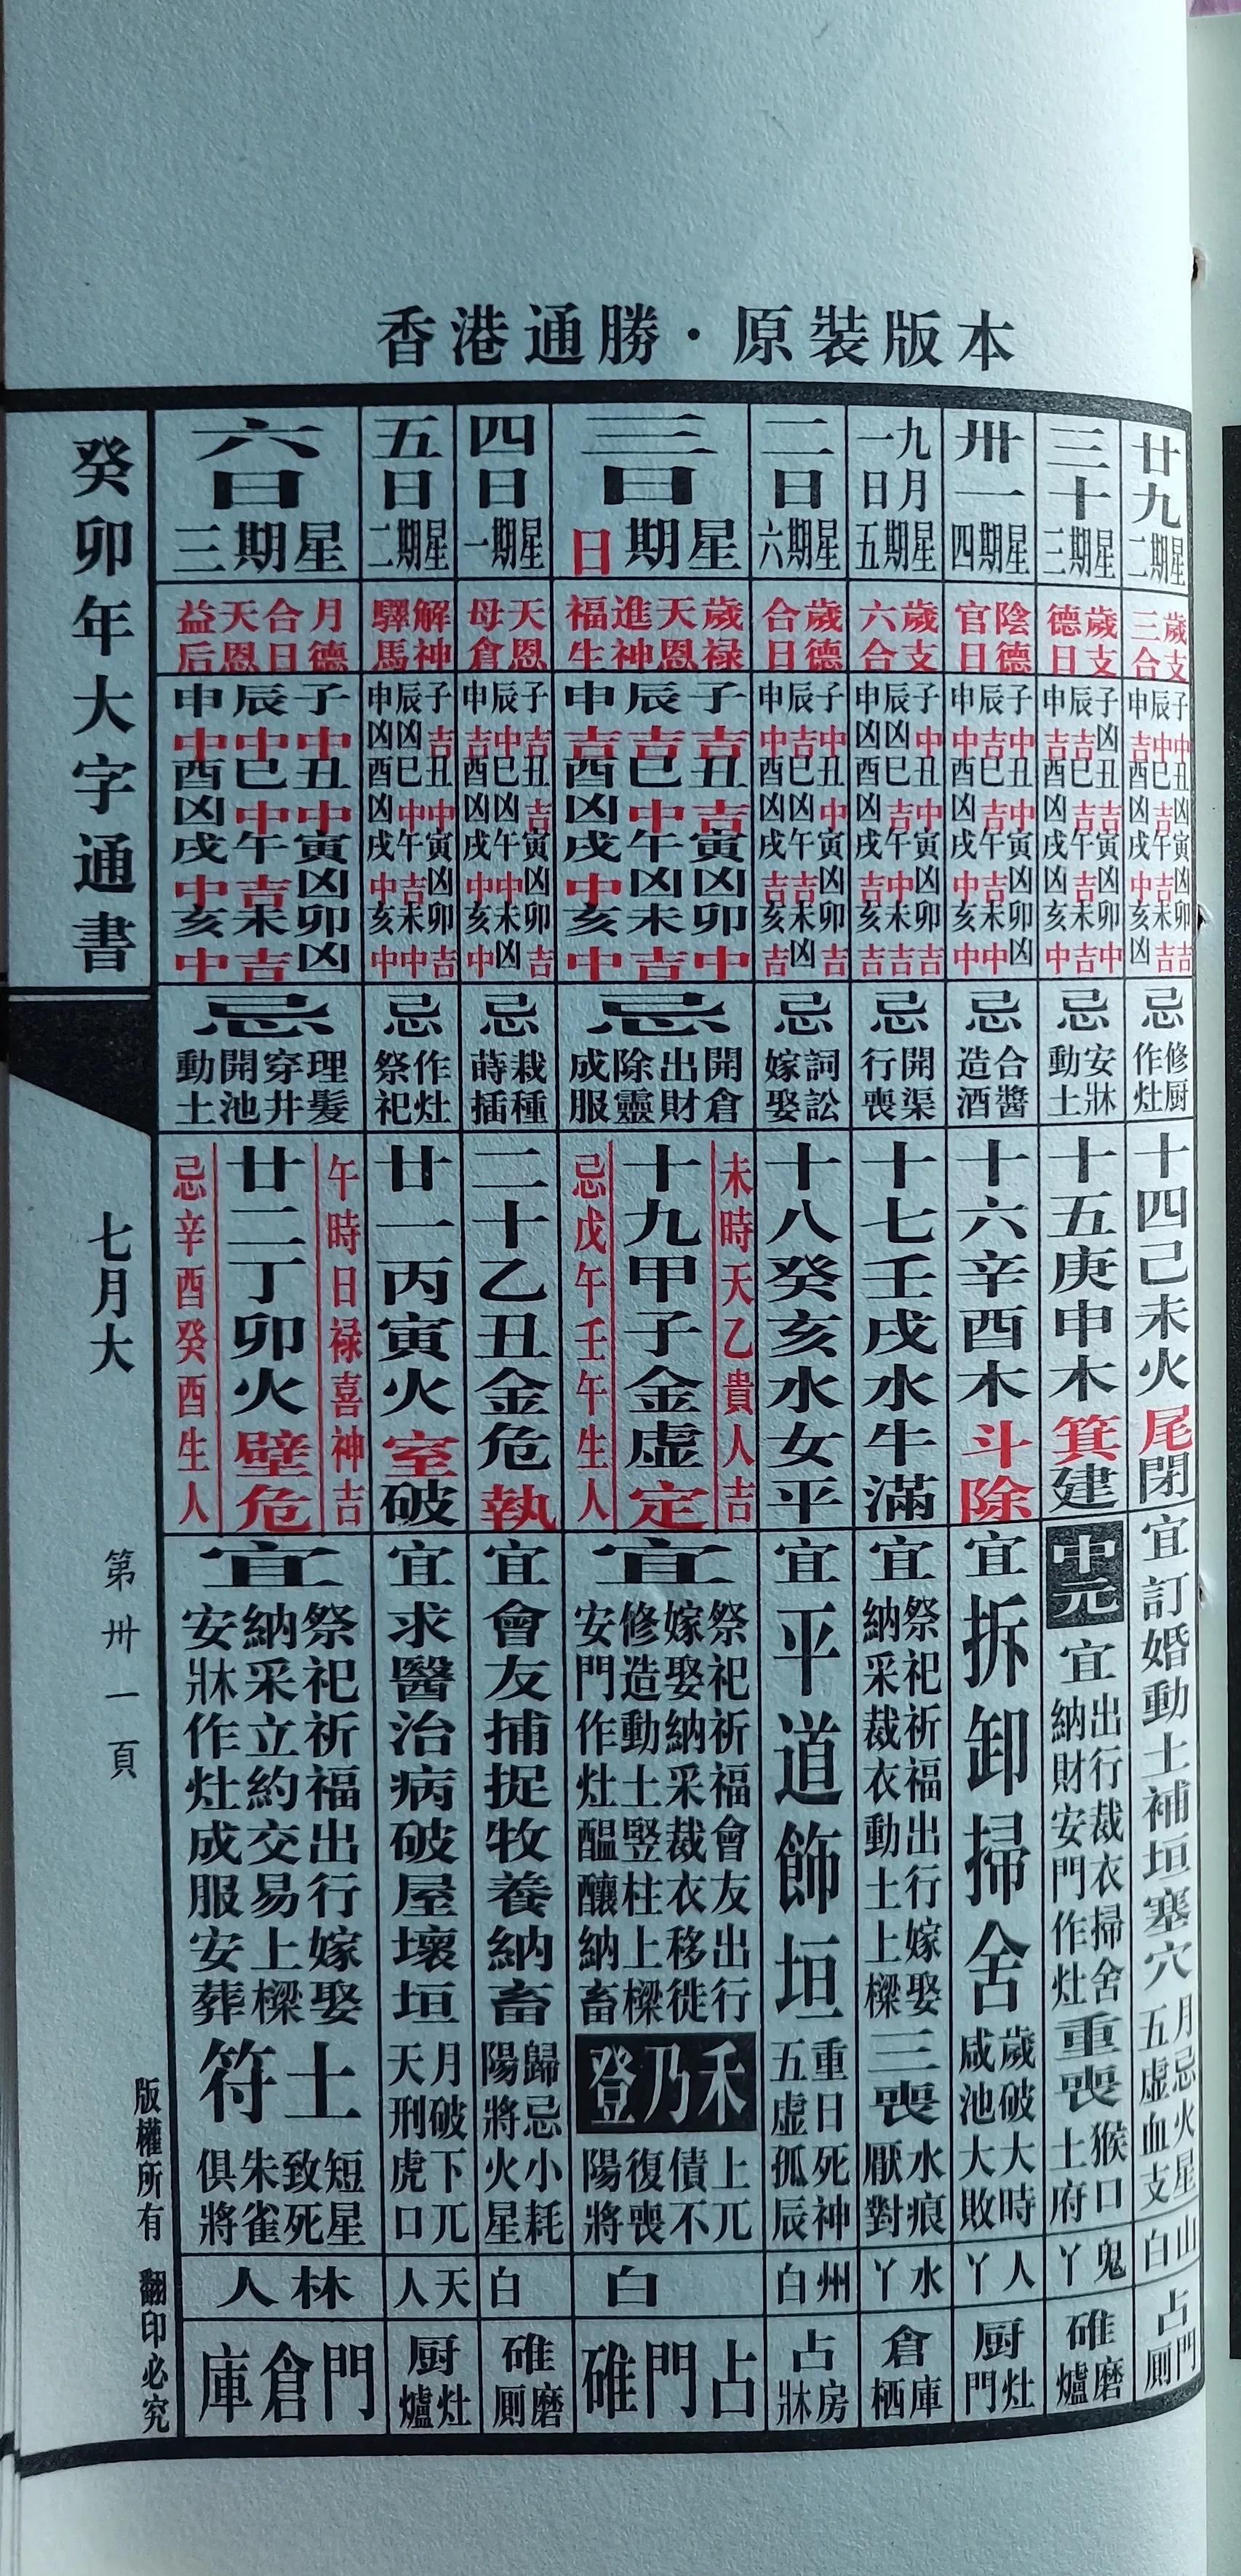 香港通勝·原裝版本
廿九
星期二
歲支
三合
子中丑凶寅凶卯吉
辰中巳吉午吉未吉
申吉酉凶戌中亥凶
忌
修厨
作灶
十四己未火尾閉
宜訂婚動土補垣塞穴
月忌火星
五虛血支
山白
占門厠
三十
星期三
歲支
德日
子凶丑吉寅凶卯中
辰吉巳吉午吉未吉
申吉酉凶戌凶亥中
忌
安牀
動土
十五庚申木箕建
中元
宜
出行裁衣掃舍
納財安門作灶
重喪
猴口
土府
鬼丫
碓磨爐
卅一
星期四
陰德
官日
子中丑中寅凶卯凶
辰吉巳吉午吉未中
申中酉凶戌中亥中
忌
合醬
造酒
十六辛酉木斗除
宜拆卸掃舍
歲破大時
咸池大敗
人丫
厨灶門
九月
一日
星期五
歲支
六合
子中丑中寅凶卯吉
辰凶巳吉午中未吉
申凶酉凶戌吉亥吉
忌
開渠
行喪
十七壬戌水牛滿
宜
祭祀祈福出行嫁娶
納采裁衣動土上樑
三喪
水痕
厭對
水丫
倉庫栖
二日
星期六
歲德
合日
子中丑中寅凶卯吉
辰吉巳凶午吉未凶
申中酉凶戌吉亥吉
忌
詞訟
嫁娶
十八癸亥水女平
宜平道飾垣
重日死神
五虛孤辰
州白
占房牀
三日
星期日
歲祿
天恩
進神
福生
子吉丑吉寅凶卯中
辰吉巳中午凶未吉
申吉酉凶戌中亥中
忌
開倉
出財
除靈
成服
未時天乙貴人吉
十九甲子金虛定
忌戊午壬午生人
宜
祭祀祈福會友出行
嫁娶納采裁衣移徙
修造動土豎柱上樑
安門作灶醞釀納畜
禾乃登
上兀
債不
復喪
陽將
白
占門碓
四日
星期一
天恩
母倉
子吉丑吉寅凶卯吉
辰中巳凶午中未凶
申吉酉凶戌中亥中
忌
栽種
蒔插
二十乙丑金危執
宜會友捕捉牧養納畜
歸忌小耗
陽將火星
白
碓磨厠
五日
星期二
解神
驛馬
子吉丑中寅凶卯吉
辰凶巳中午吉未中
申凶酉凶戌中亥中
忌
作灶
祭祀
廿一丙寅火室破
宜求醫治病破屋壞垣
月破下兀
天刑虎口
天人
厨灶爐
六日
星期三
月德
合日
天恩
益后
子中丑中寅凶卯凶
辰中巳中午吉未吉
申中酉凶戌中亥中
忌
理髮
穿井
開池
動土
午時日祿喜神吉
廿二丁卯火壁危
忌辛酉癸酉生人
宜
祭祀祈福出行嫁娶
納采立約交易上樑
安牀作灶成服安葬
土符
短星
致死
朱雀
俱將
林人
門倉庫
癸卯年大字通書
七月大
第卅一頁
版權所有 翻印必究